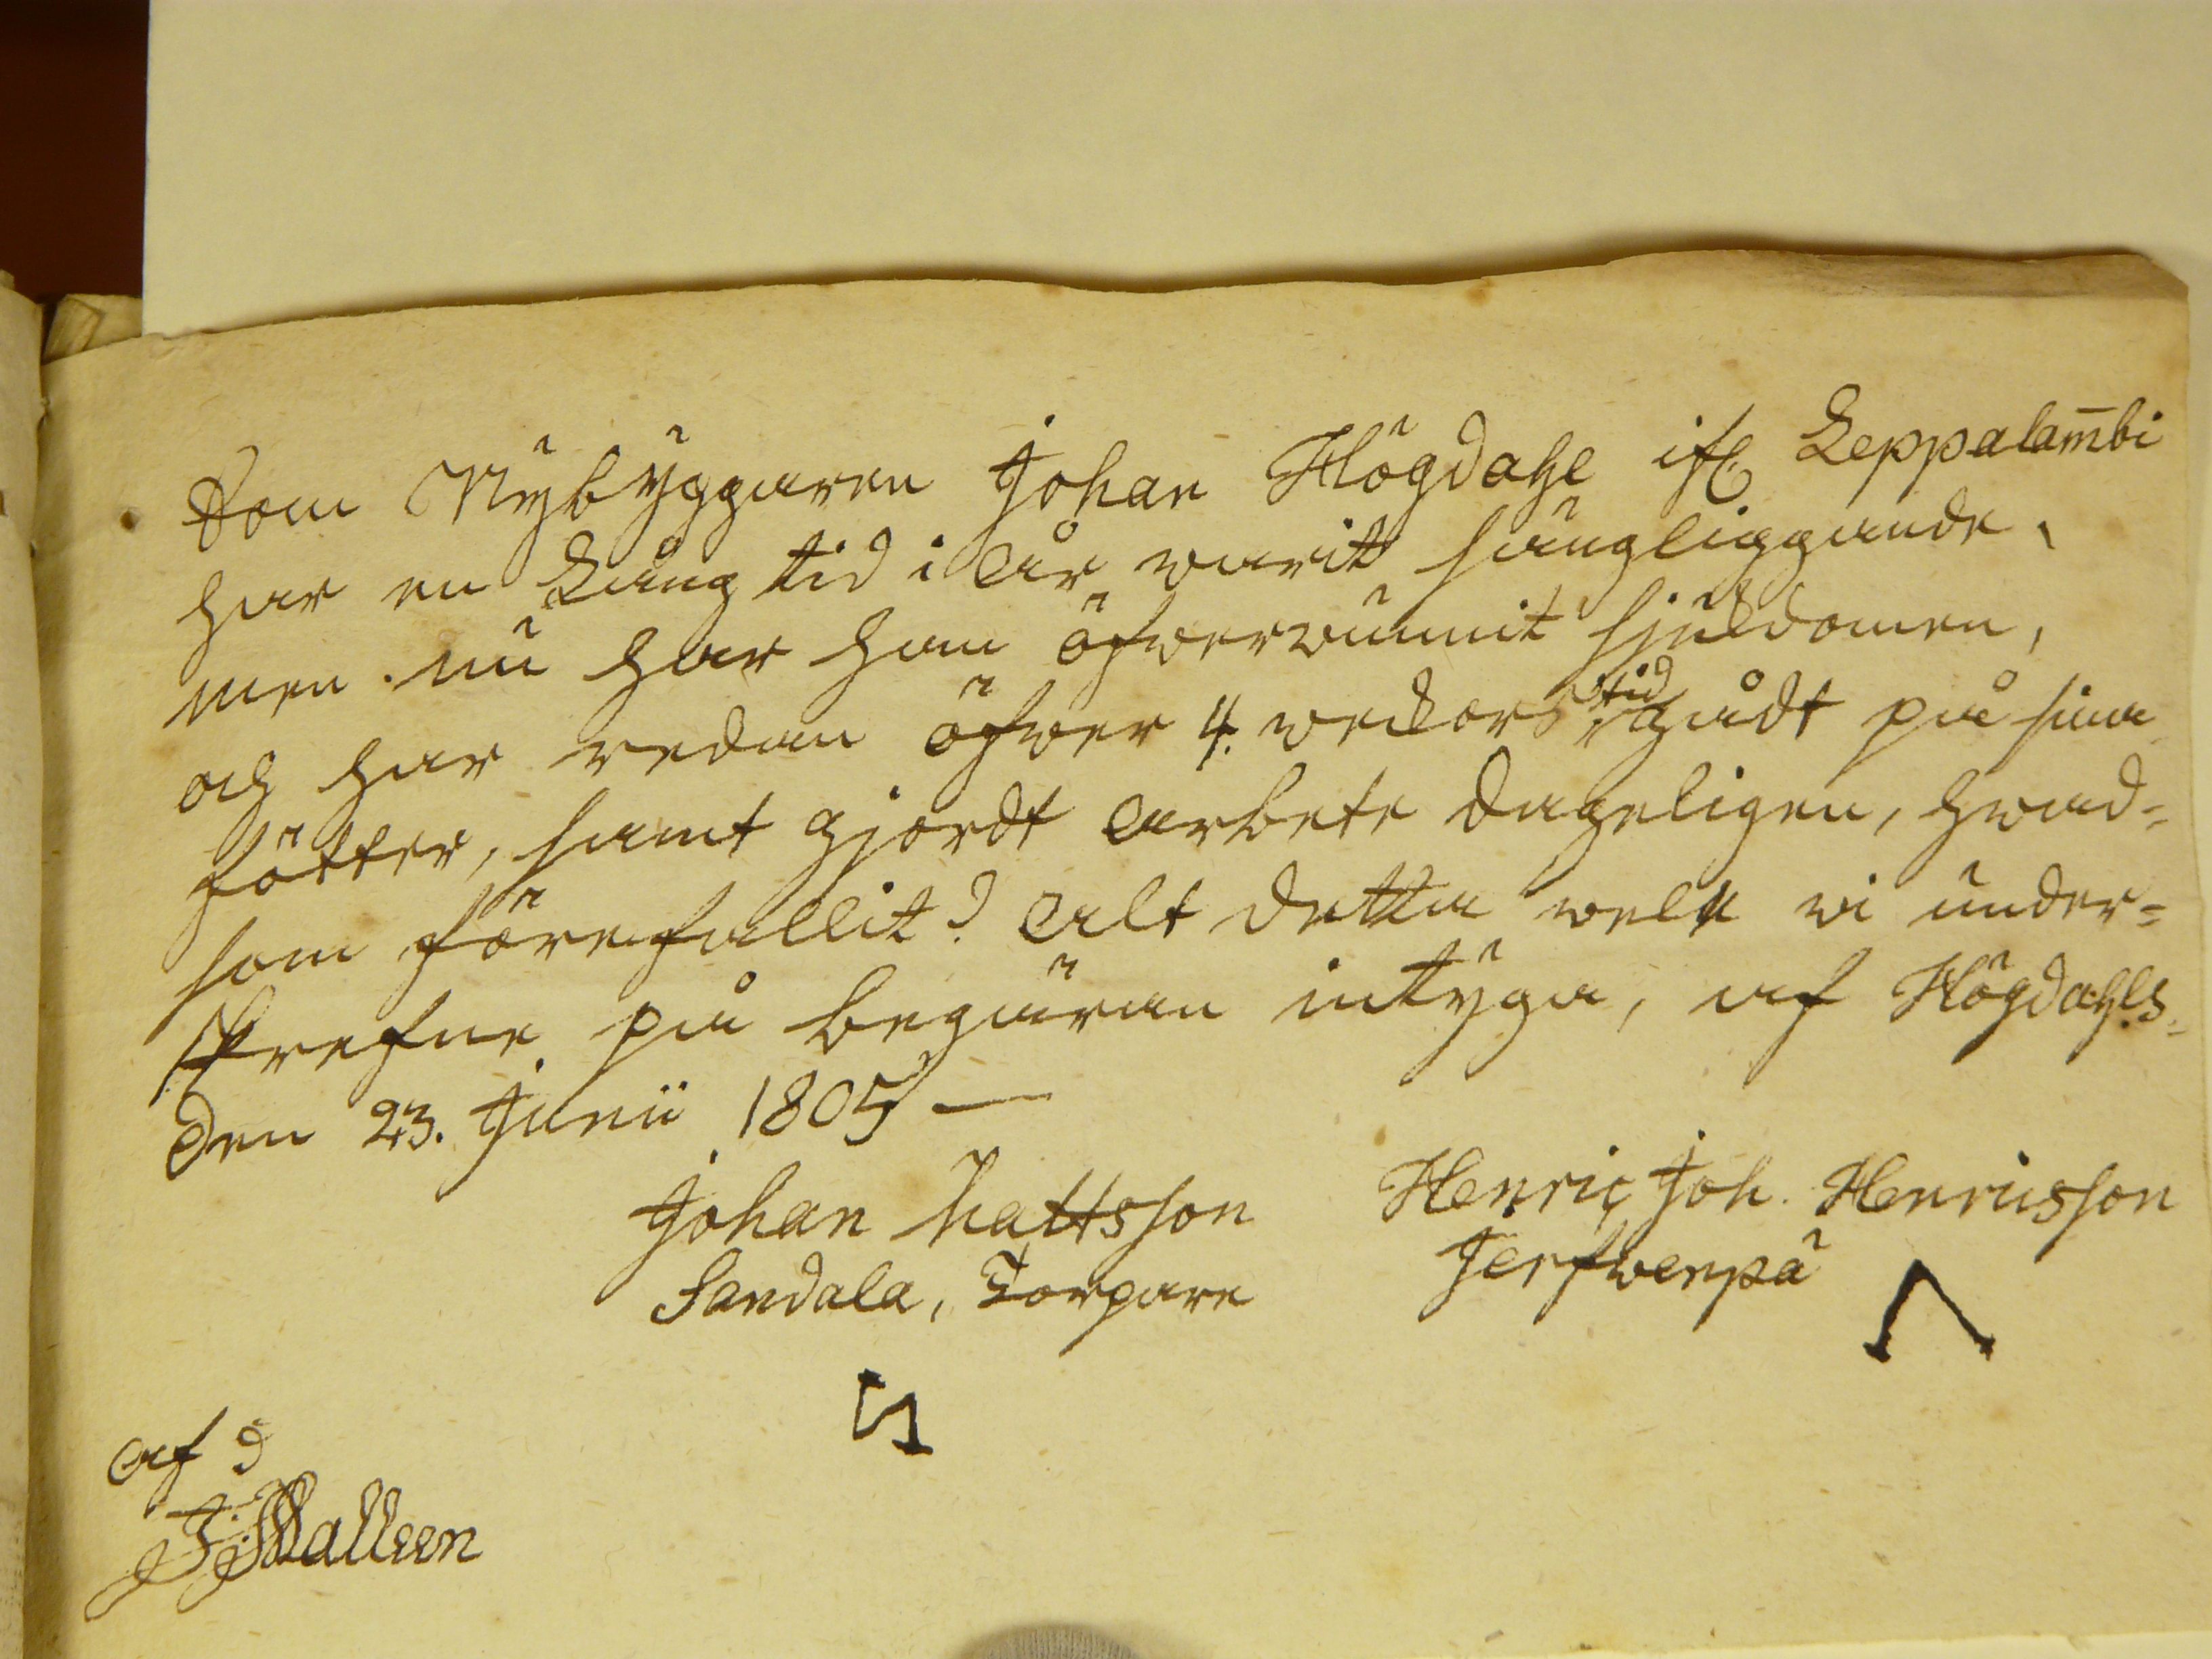 Som Nybyggaren Johan Högdahl ifr. Leppalam̄bi
har en Lång tid i År warit sängliggande,
men nu har han öfwerwunnit sjukdomen,
och har redan öfwer 4. weckors tid gådt på sina
fötter, samt gjordt Arbete dageligen, hwad=
som förefallit? Alt detta wele vi under=
skrefne på begäran intyga, af Högdahls
Den 23. Junii 1805 —
Johan Mattsson Henric Joh. Henricsson
Sandala, Torpare Jerfwenpä
af
J: Malleen